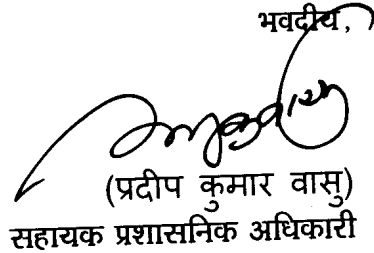 भवदीय,
(प्रदीप कुमार वासु)
सहायक प्रशासनिक अधिकारी